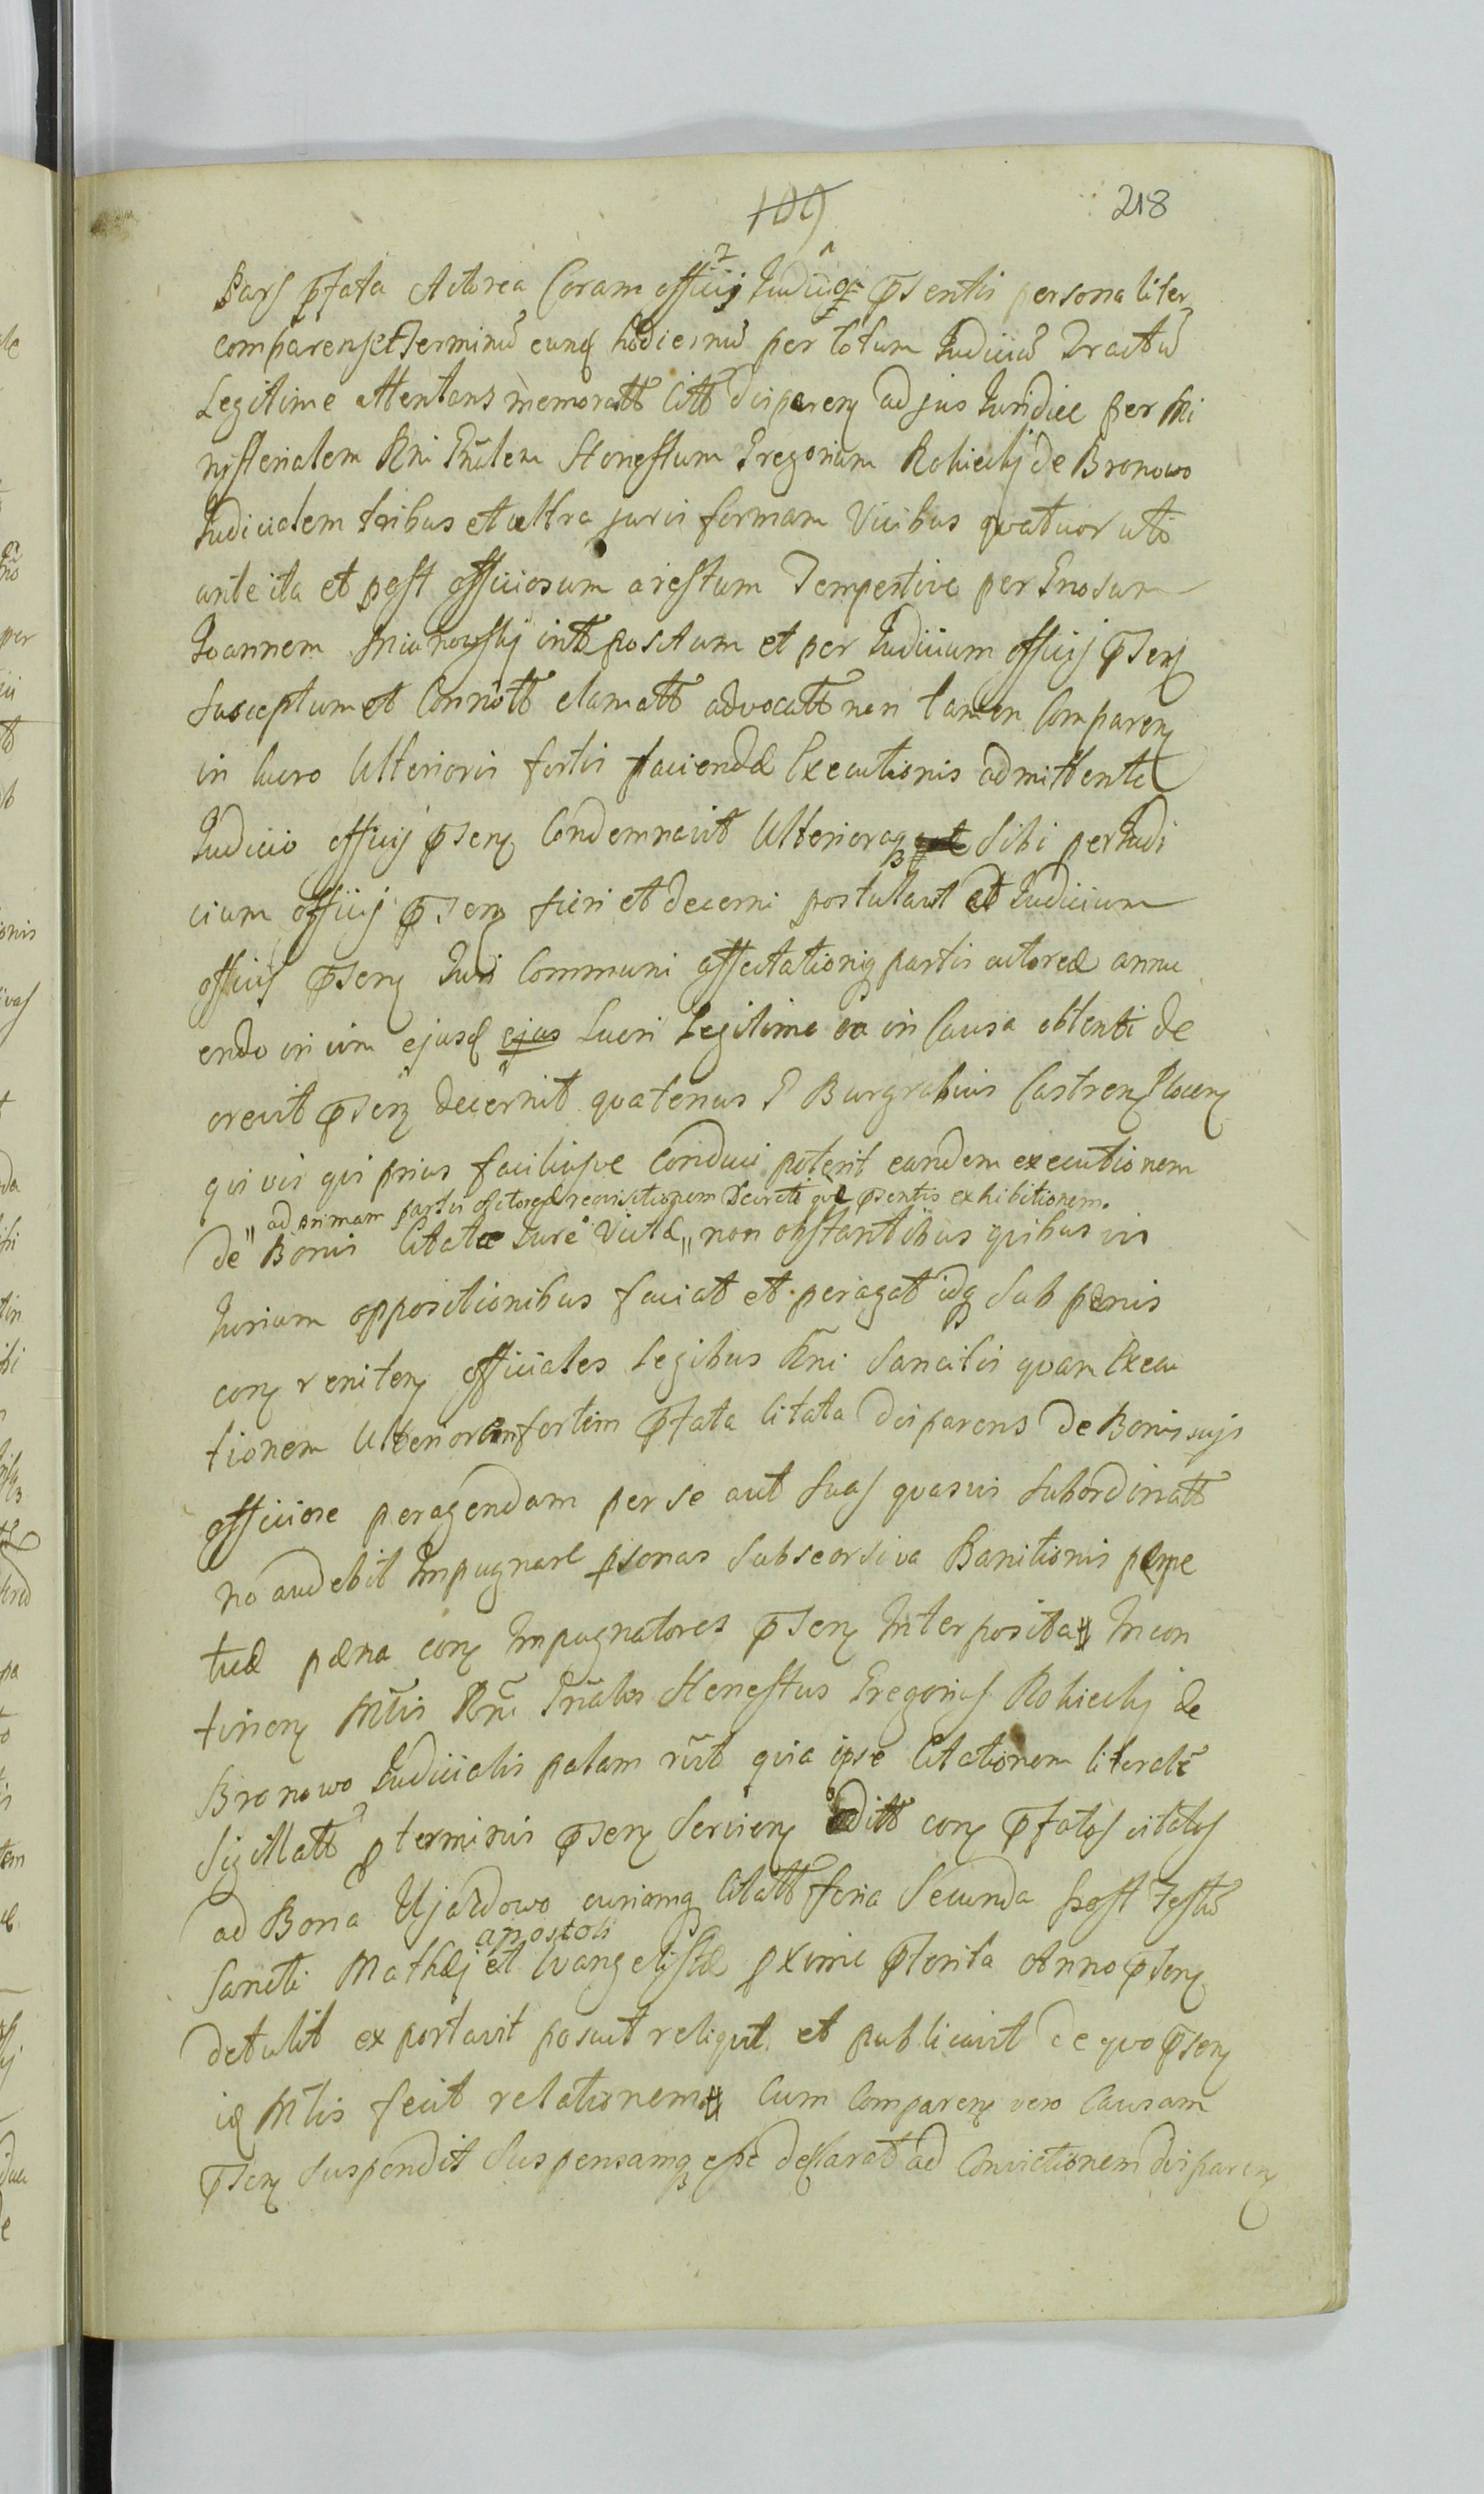 109 218
Pars pfata Actorea Coram officij Judicio psentis personaliter
comparens et Terminũ eund hodiernũ per totum Judicii Tractũ
Legitime attentans memoratt Citt disparen ad jus Juridice per Mi
nisterialem Rni Gnalem Honestum Gregorium Rokicky de Bronowo
Judicialem tribus et ultra juris formam Vicibus quatuor uti
ante ita et post officiosum arestum Tempestive per Gnosum
Joannem intpositum et per Judicium officij psens
susceptum et Connott clamatt advocatt non tamen Comparen
in lucro Ulterioris fortis faciendæ Executionis admittente
Judicio officij psen Condemnavit Ulterioraq sibi per Judi
cium officij psen fieri et decerni postulavit et Judicium
officij psen Juri Communi affectationiq partis actoreæ annu
endo in vim ejusd ejus Lucri Legitime ea in Causa obtenti de
crevit psen decernit quatenus G Burgrabius Castren Plocen
qui vis qui prius faciliusve Conduci poterit eandem executionem
ad primam partis Actoreæ requisitionem Decretiqve psentis exhibitionem.
de" Bonis Citatæ Jure Victæ" non obstantibus quibus vis
Jurium oppositionibus faciat et peragat idq sub pænis
con reniten officiales Legibus Rni Sancitis quam Execu
tionem Ulteriorem fortem pfata Citata disparens de Bonis suis
officiose peragendam per se aut suas quasvis subordinatt
nõ audebit Impugnare psonas sub seorsiva Banitionis perpe
tuæ pæna con Impugnatores psen Interposita Incon
tinen Mtis Rni Gnalis Honestus Gregorius Rokicky de
Bronowo Judicialis palam rũt quia ipse Citationem literalẽ
Sigillatt p terminis psen Servien editt con pfatos citatos
ad Bona Ujazdowo curiamq Citatt feria Secunda post Festũ
apostoli
Sancti Mathæi et Evangelistæ pxime pterita Anno psen
detulit exportavit posuit reliquit et publicavit de quo psen
id Mtis fecit relationem Cum Comparen vero Causam
psen suspendit suspensamq esse declarat ad Convictionem disparen